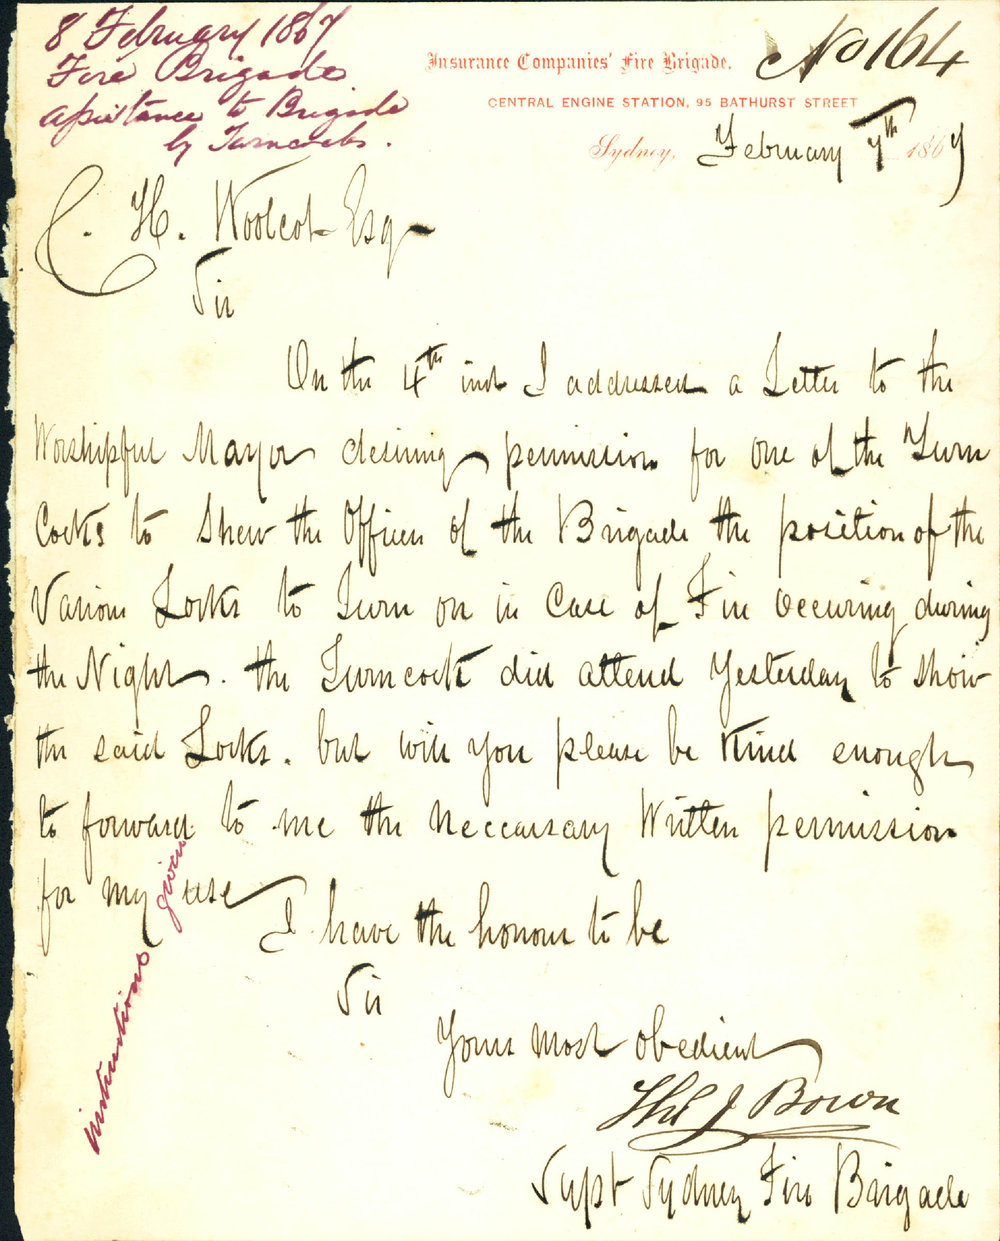 8 February 1867
Fire Brigade
assistance to Brigade
by Turncocks.
Insurance Companies' Fire Brigade.
No 164
CENTRAL ENGINE STATION, 95 BATHURST STREET
Sydney, February 7th 1867
C. H. Woolcot Esq
Sir
On the 4th inst I addressed a Letter to the
Worshipful Mayor desiring permission for one of the Turn
Cocks to Shew the Officers of the Brigade the position of the
Various Locks to Turn on in Case of Fire occuring during
the Night. the Turncock did attend Yesterday to show
the said Locks. but will you please be Kind enough
to forward to me the Neccarsary Written permission
for my use
I have the honour to be
Sir
Yours most obedient
Thos J Bown
Supt Sydney Fire Brigade
instructions given